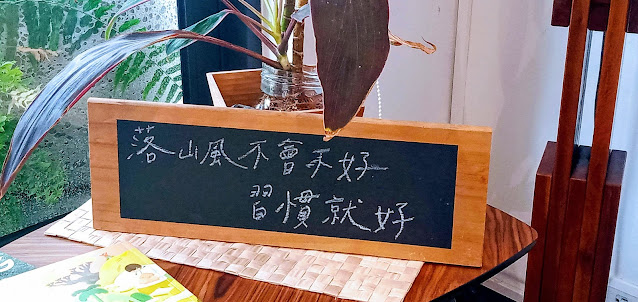 落山風不會不好
習慣就好